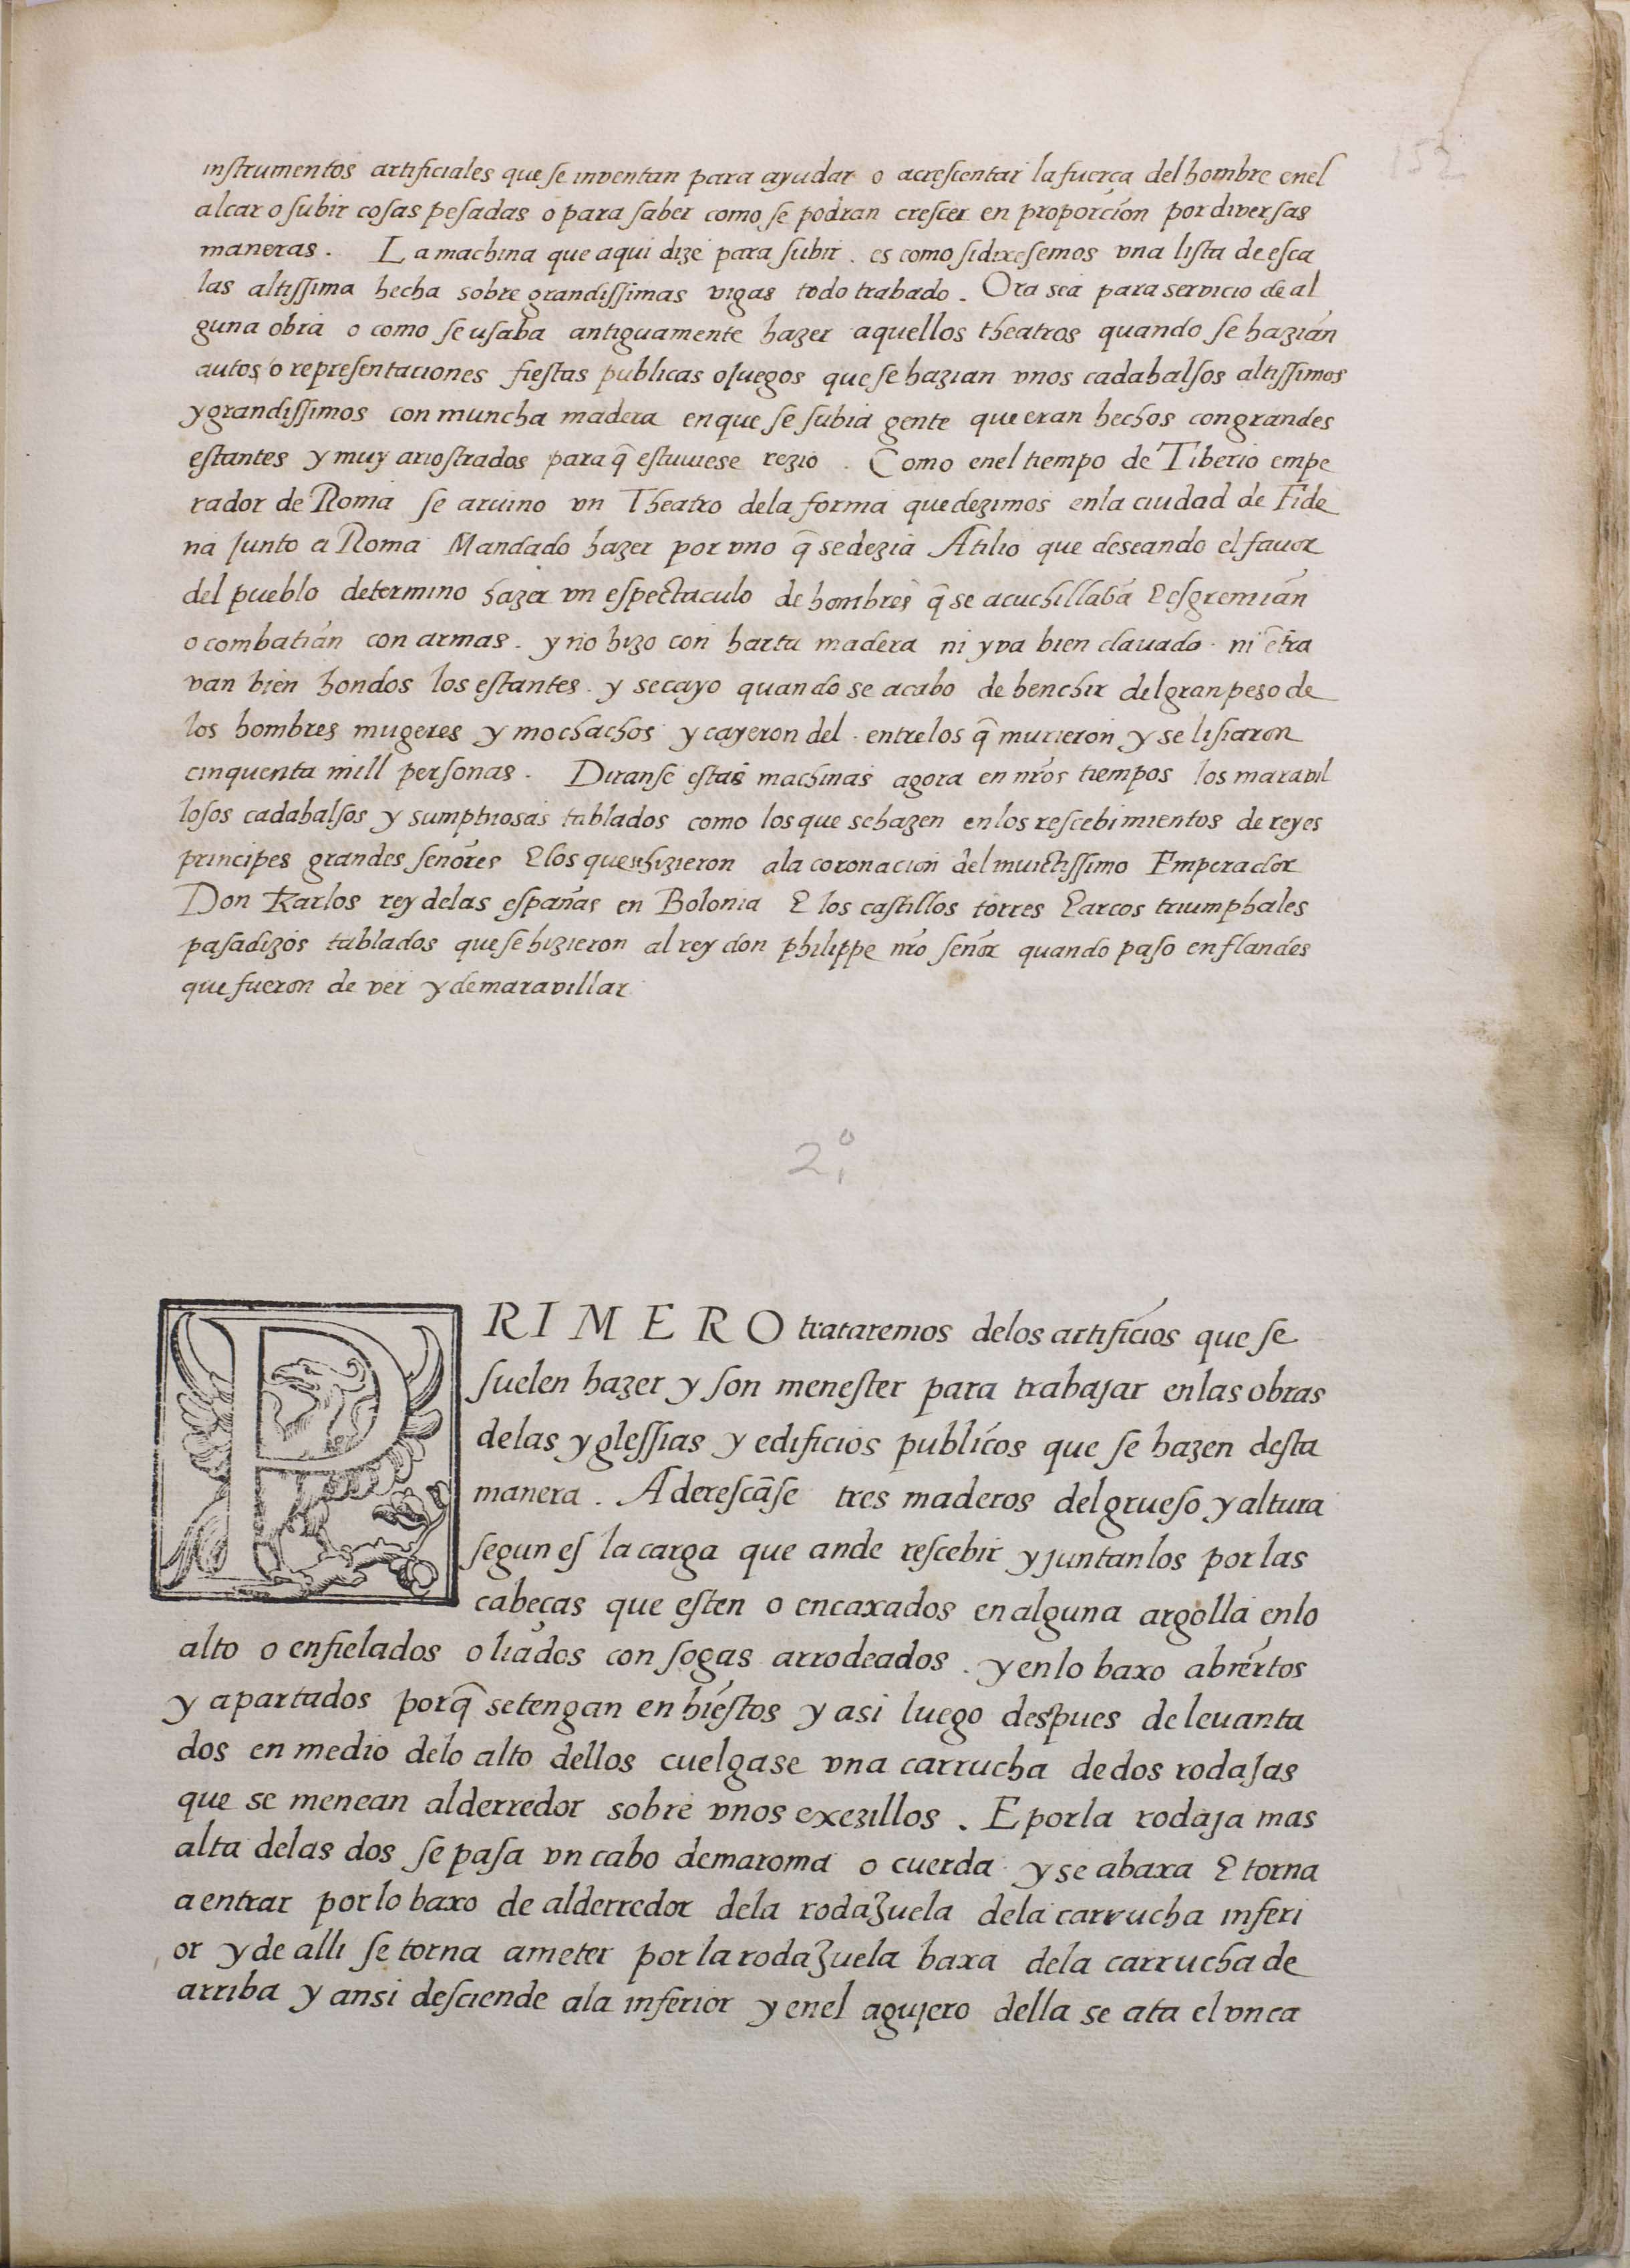 152
instrumentos artificiales que se inventan para ayudar o acrescentar la fuerça del hombre enel
alcar o subir cosas pesadas o para saber como se podran crescer en proporcion por diversas
maneras. La machina que aqui dize para subir. es como si dixesemos vna lista de esca
las altissima hecha sobre grandissimas vigas todo trabado. Ora sea para servicio de al
guna obra o como se usaba antiguamente hazer aquellos theatros quando se hazian
autos o representaciones fiestas publicas o juegos que se hazian vnos cadahalsos altissimos
y grandissimos con muncha madera en que se subia gente que eran hechos con grandes
estantes y muy ariostrados para q̃ estuuiese rezio. Como enel tiempo de Tiberio empe
rador de Roma se aruino vn Theatro dela forma que dezimos enla ciudad de Fide
na junto a Roma Mandado hazer por vno q̃ se dezia Atilio que deseando el fauor
del pueblo determino hazer vn espectaculo de hombres q̃ se acuchillabã & esgremian
o combatian con armas. y no hizo con harta madera ni yva bien clauado. ni ẽtra
van bien hondos los estantes. y se cayo quando se acabo de henchir del gran peso de
los hombres mugeres y mochachos y cayeron del. entre los q̃ murieron y se lisiaron
cinquenta mill personas. Diranse estas machinas agora en nr̃os tiempos los maravil
losos cadahalsos y sumptuosas tablados como los que se hazen enlos rescebimientos de reyes
principes grandes señores & los que se hizieron ala coronacion del inuictissimo Emperador
Don Karlos rey delas españas en Bolonia & los castillos torres & arcos triumphales
pasadizos tablados que se hizieron al rey don philippe nr̃o señor quando paso en flandes
que fueron de ver y de maravillar
2º
PRIMERO trataremos delos artificios que se
suelen hazer y son menester para trabajar enlas obras
delas yglessias y edificios publicos que se hazen desta
manera. Aderescãse tres maderos del grueso y altura
segun es la carga que ande rescebir y juntanlos por las
cabeças que esten o encaxados en alguna argolla enlo
alto o enfielados o liados con sogas arrodeados. y enlo baxo abiertos
y apartados porq̃ se tengan enhiestos y asi luego despues de leuanta
dos en medio delo alto dellos cuelgase vna carrucha de dos rodajas
que se menean alderredor sobre vnos exezillos. E por la rodaja mas
alta delas dos se pasa vn cabo de maroma o cuerda y se abaxa & torna
a entrar por lo baxo de alderredor dela rodazuela dela carrucha inferi
or y de alli se torna a meter por la rodazuela baxa dela carrucha de
arriba y ansi desciende ala inferior y enel agujero della se ata el vn ca